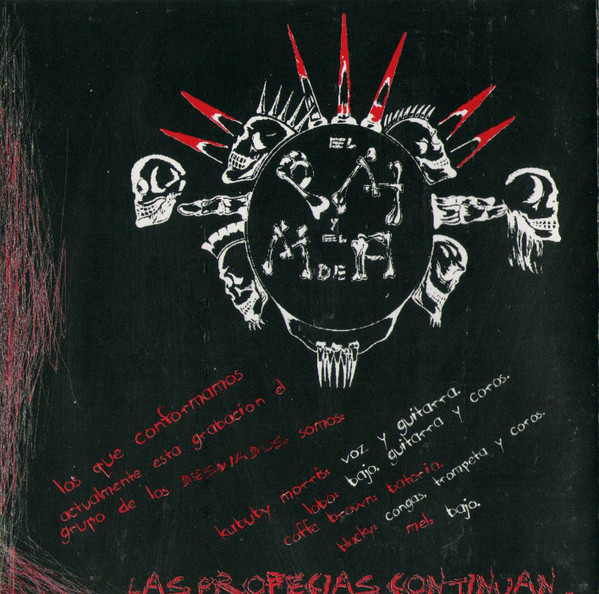 EL
PM
Y
EL
M DE A
los que confórmamos
actualmente esta grabación el
grupo de los DESVIADOS somos:
kabuby morris: voz y guitarra.
lobo: bajo, guitarra y coros.
coffe brown: batería.
blacky: congas, trompeta y coros.
mel: bajo.
LAS PROFECIAS CONTINUAN..